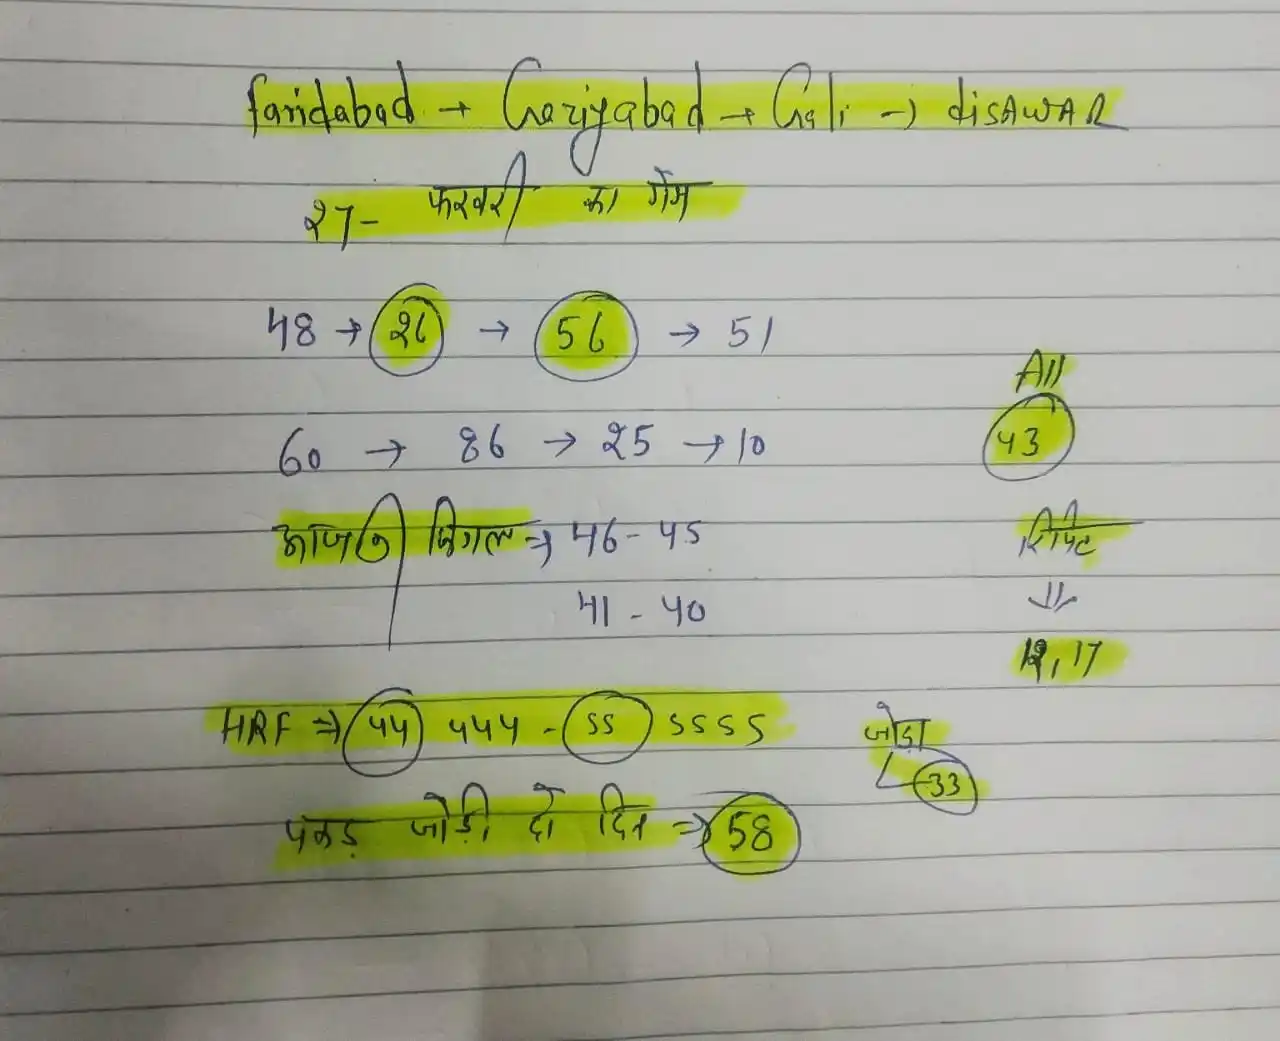 faridabad → Gaziyabad → Gali → disAWAR
27- फरवरी का गेम
48 → 26 → 56 → 51
All
43
60 → 86 → 25 → 10
→ 46-45
रिपिट
41-40
⇓
12, 17
HRF ⇒ 44 444 - 55 5555
जोडा
33
पकड़ जोड़ी दो दिन ⇒ 58